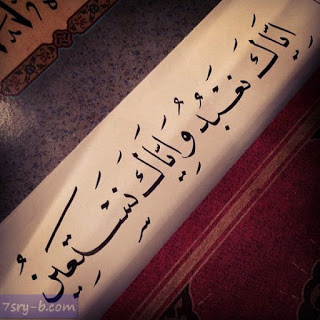 إِيَّاكَ نَعْبُدُ وَإِيَّاكَ نَسْتَعِينُ
7sry-b.com